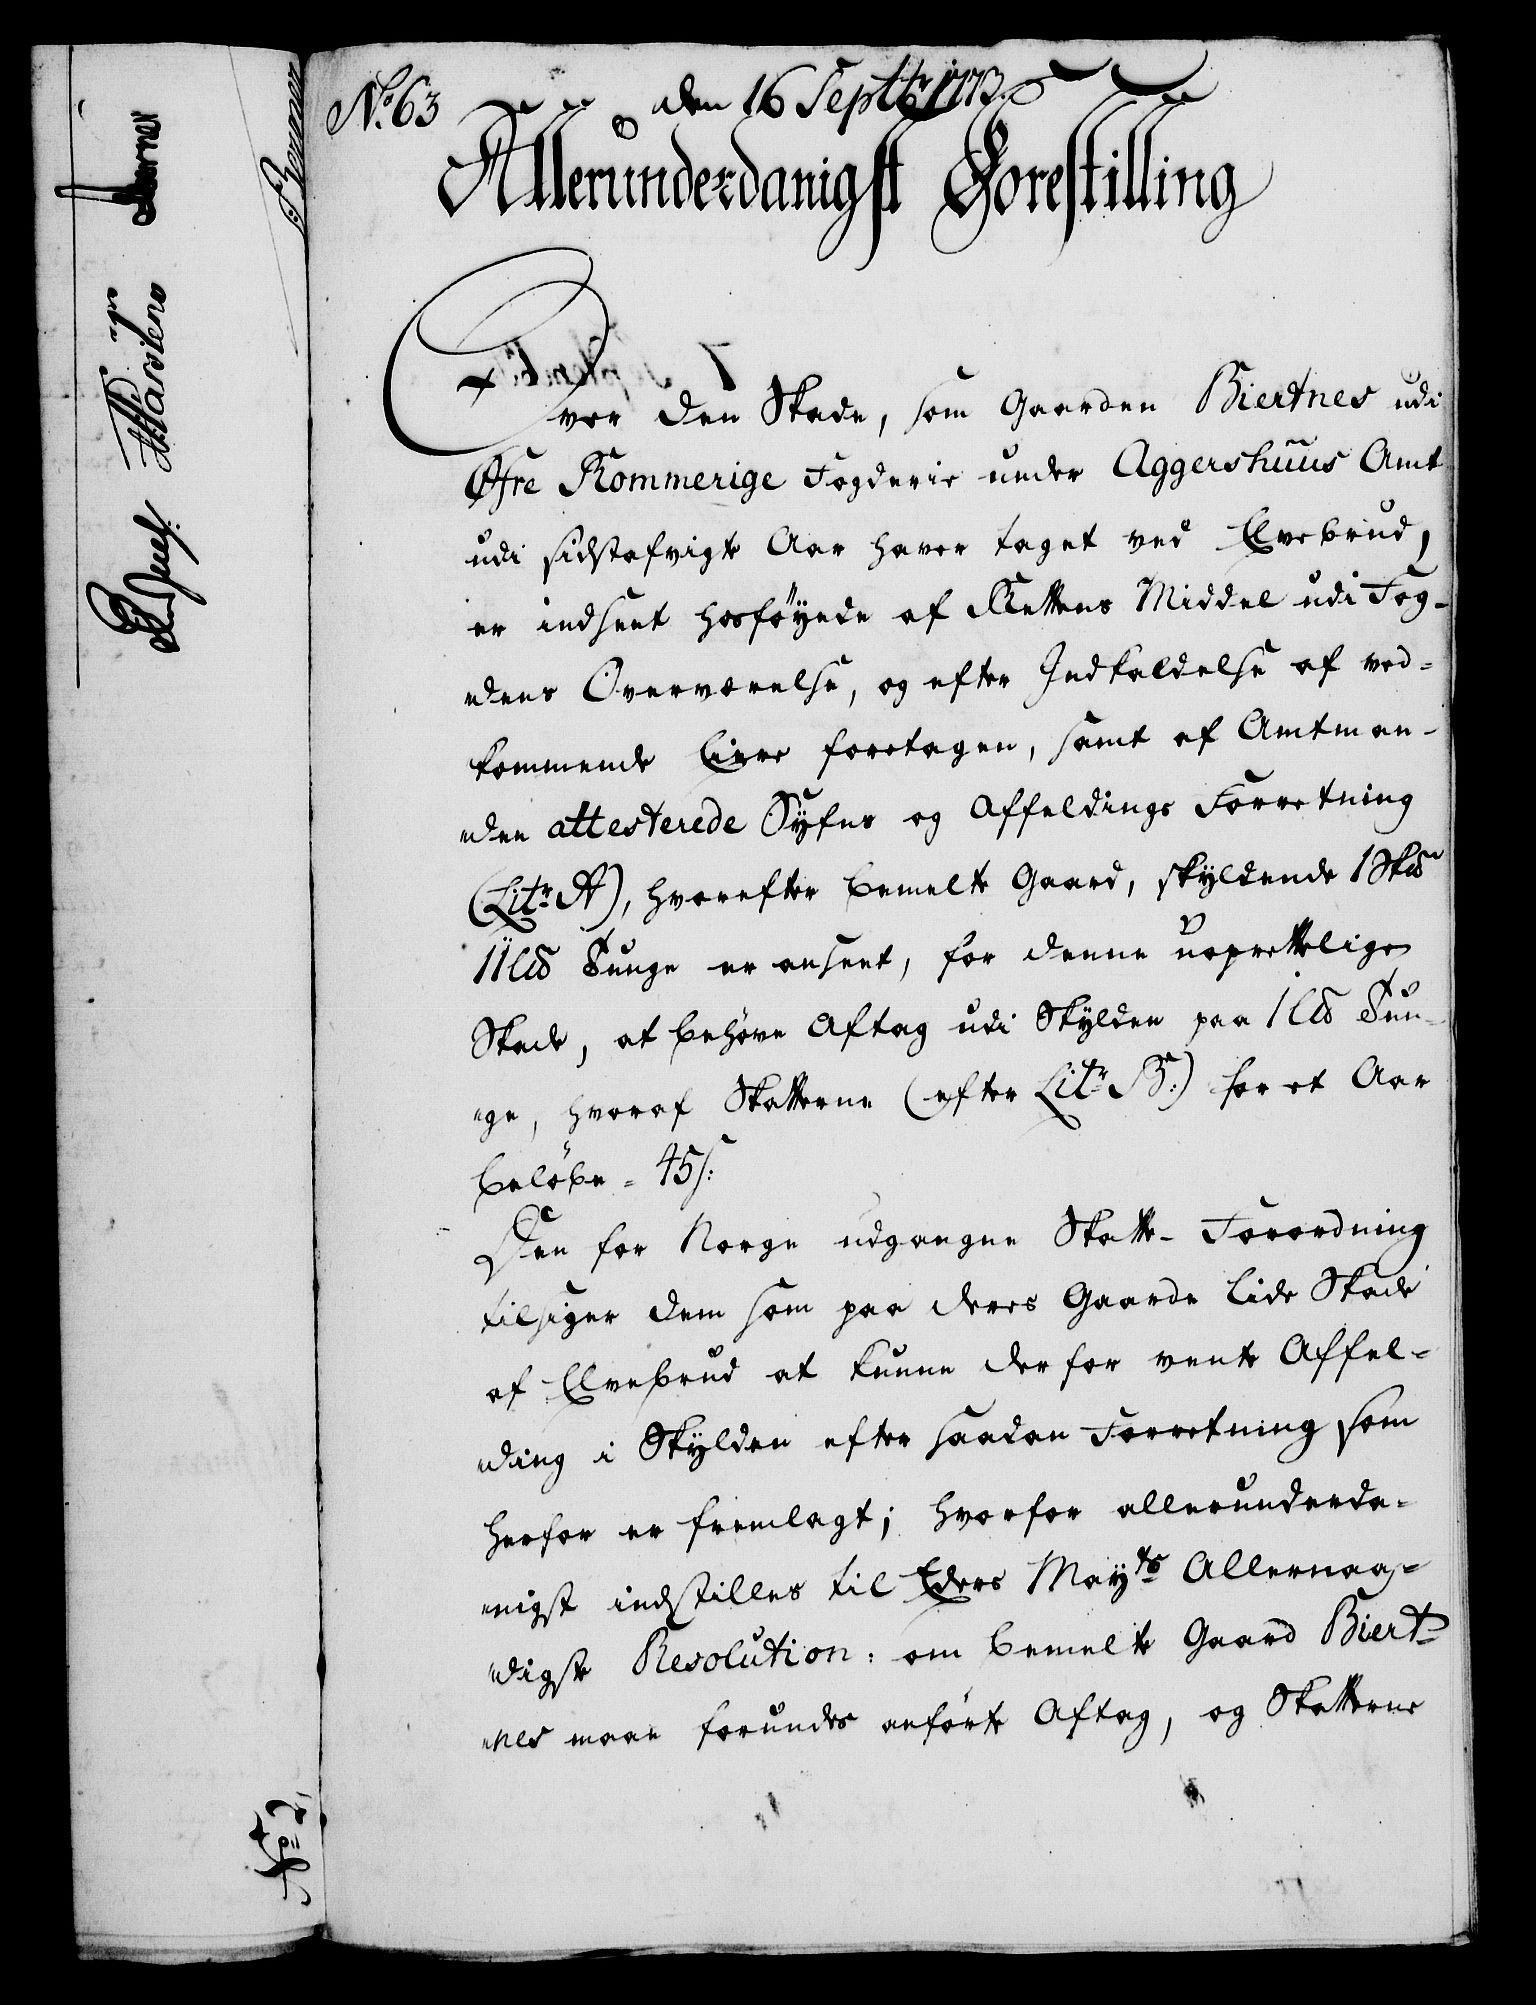 No. 63
den 16 Septbr 1773.
Allerunderdanigst Forestilling
Over den Skade, som Gaarden Biertnes udi
Øfre Rommerige Fogderie under Aggershuus Amt
udi sidstafvigte Aar haver taget ved Elvebrud,
er indsent hosföyede af Rettens Middel udi Fog-
dens Overværelse, og efter Indkaldelse af ved-
kommende Eiere foretagen, samt af Amtman-
den attesterede Syfns og Affeldings Forretning
(Litr. A), hvorefter bemelte Gaard, skyldende 1 Skd
11 Ld Tunge er anseet, for denne uoprettelige
Skade, at behöve Aftag udi Skylden paa 1 Ld Tun-
ge, hvoraf Skatterne (efter Litr. B:) for et Aar
belöbe = 45 s:
Den for Norge udgangne Skatte-Forordning
tilsiger dem som paa deres Gaarde lide Skade
af Elvebrud at kunne derfor vente Affel-
ding i Skylden efter saadan Forretning som
herfor er fremlagt; hvorfor allerunderda-
nigst indstilles til Eders Mayts Allernaa-
digste Resolution: om bemelte Gaard Biert-
nes maae forundes anförte Aftag, og Skatterne